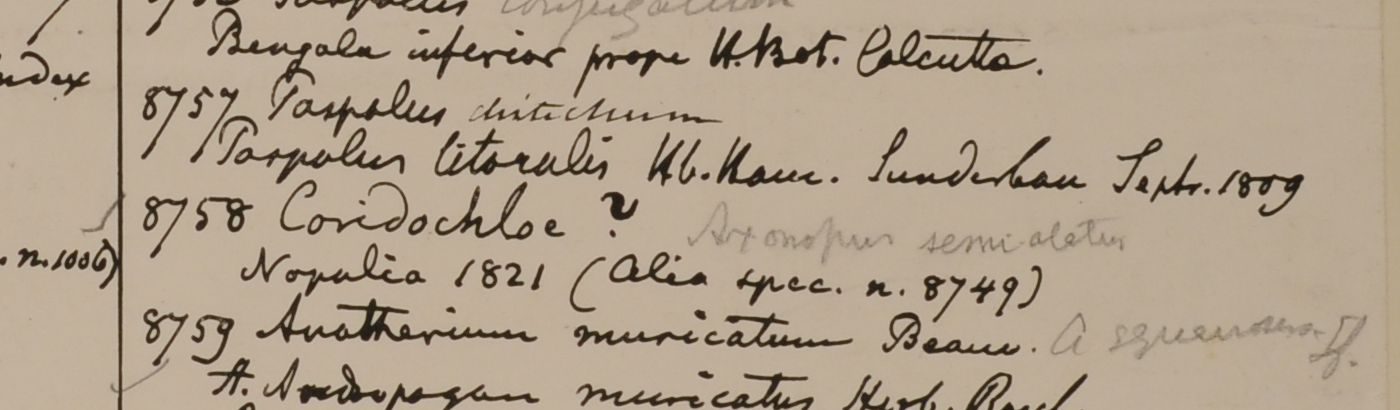 Paspalus conjugatum
Bengala inferior prope H. Bot. Calcutta.
ndex
8757 Paspalus distichum
Paspalus litoralis Hb. Ham. Sunderban Septr. 1809
8758 Coridochloe ? Axonopus semialatus
. n. 1006)
Napalia 1821 (Alia spec. n. 8749)
8759 Anatherium muricatum Beauv. A squarrosus
A. Andropogon muricatus Herb. Roxb.